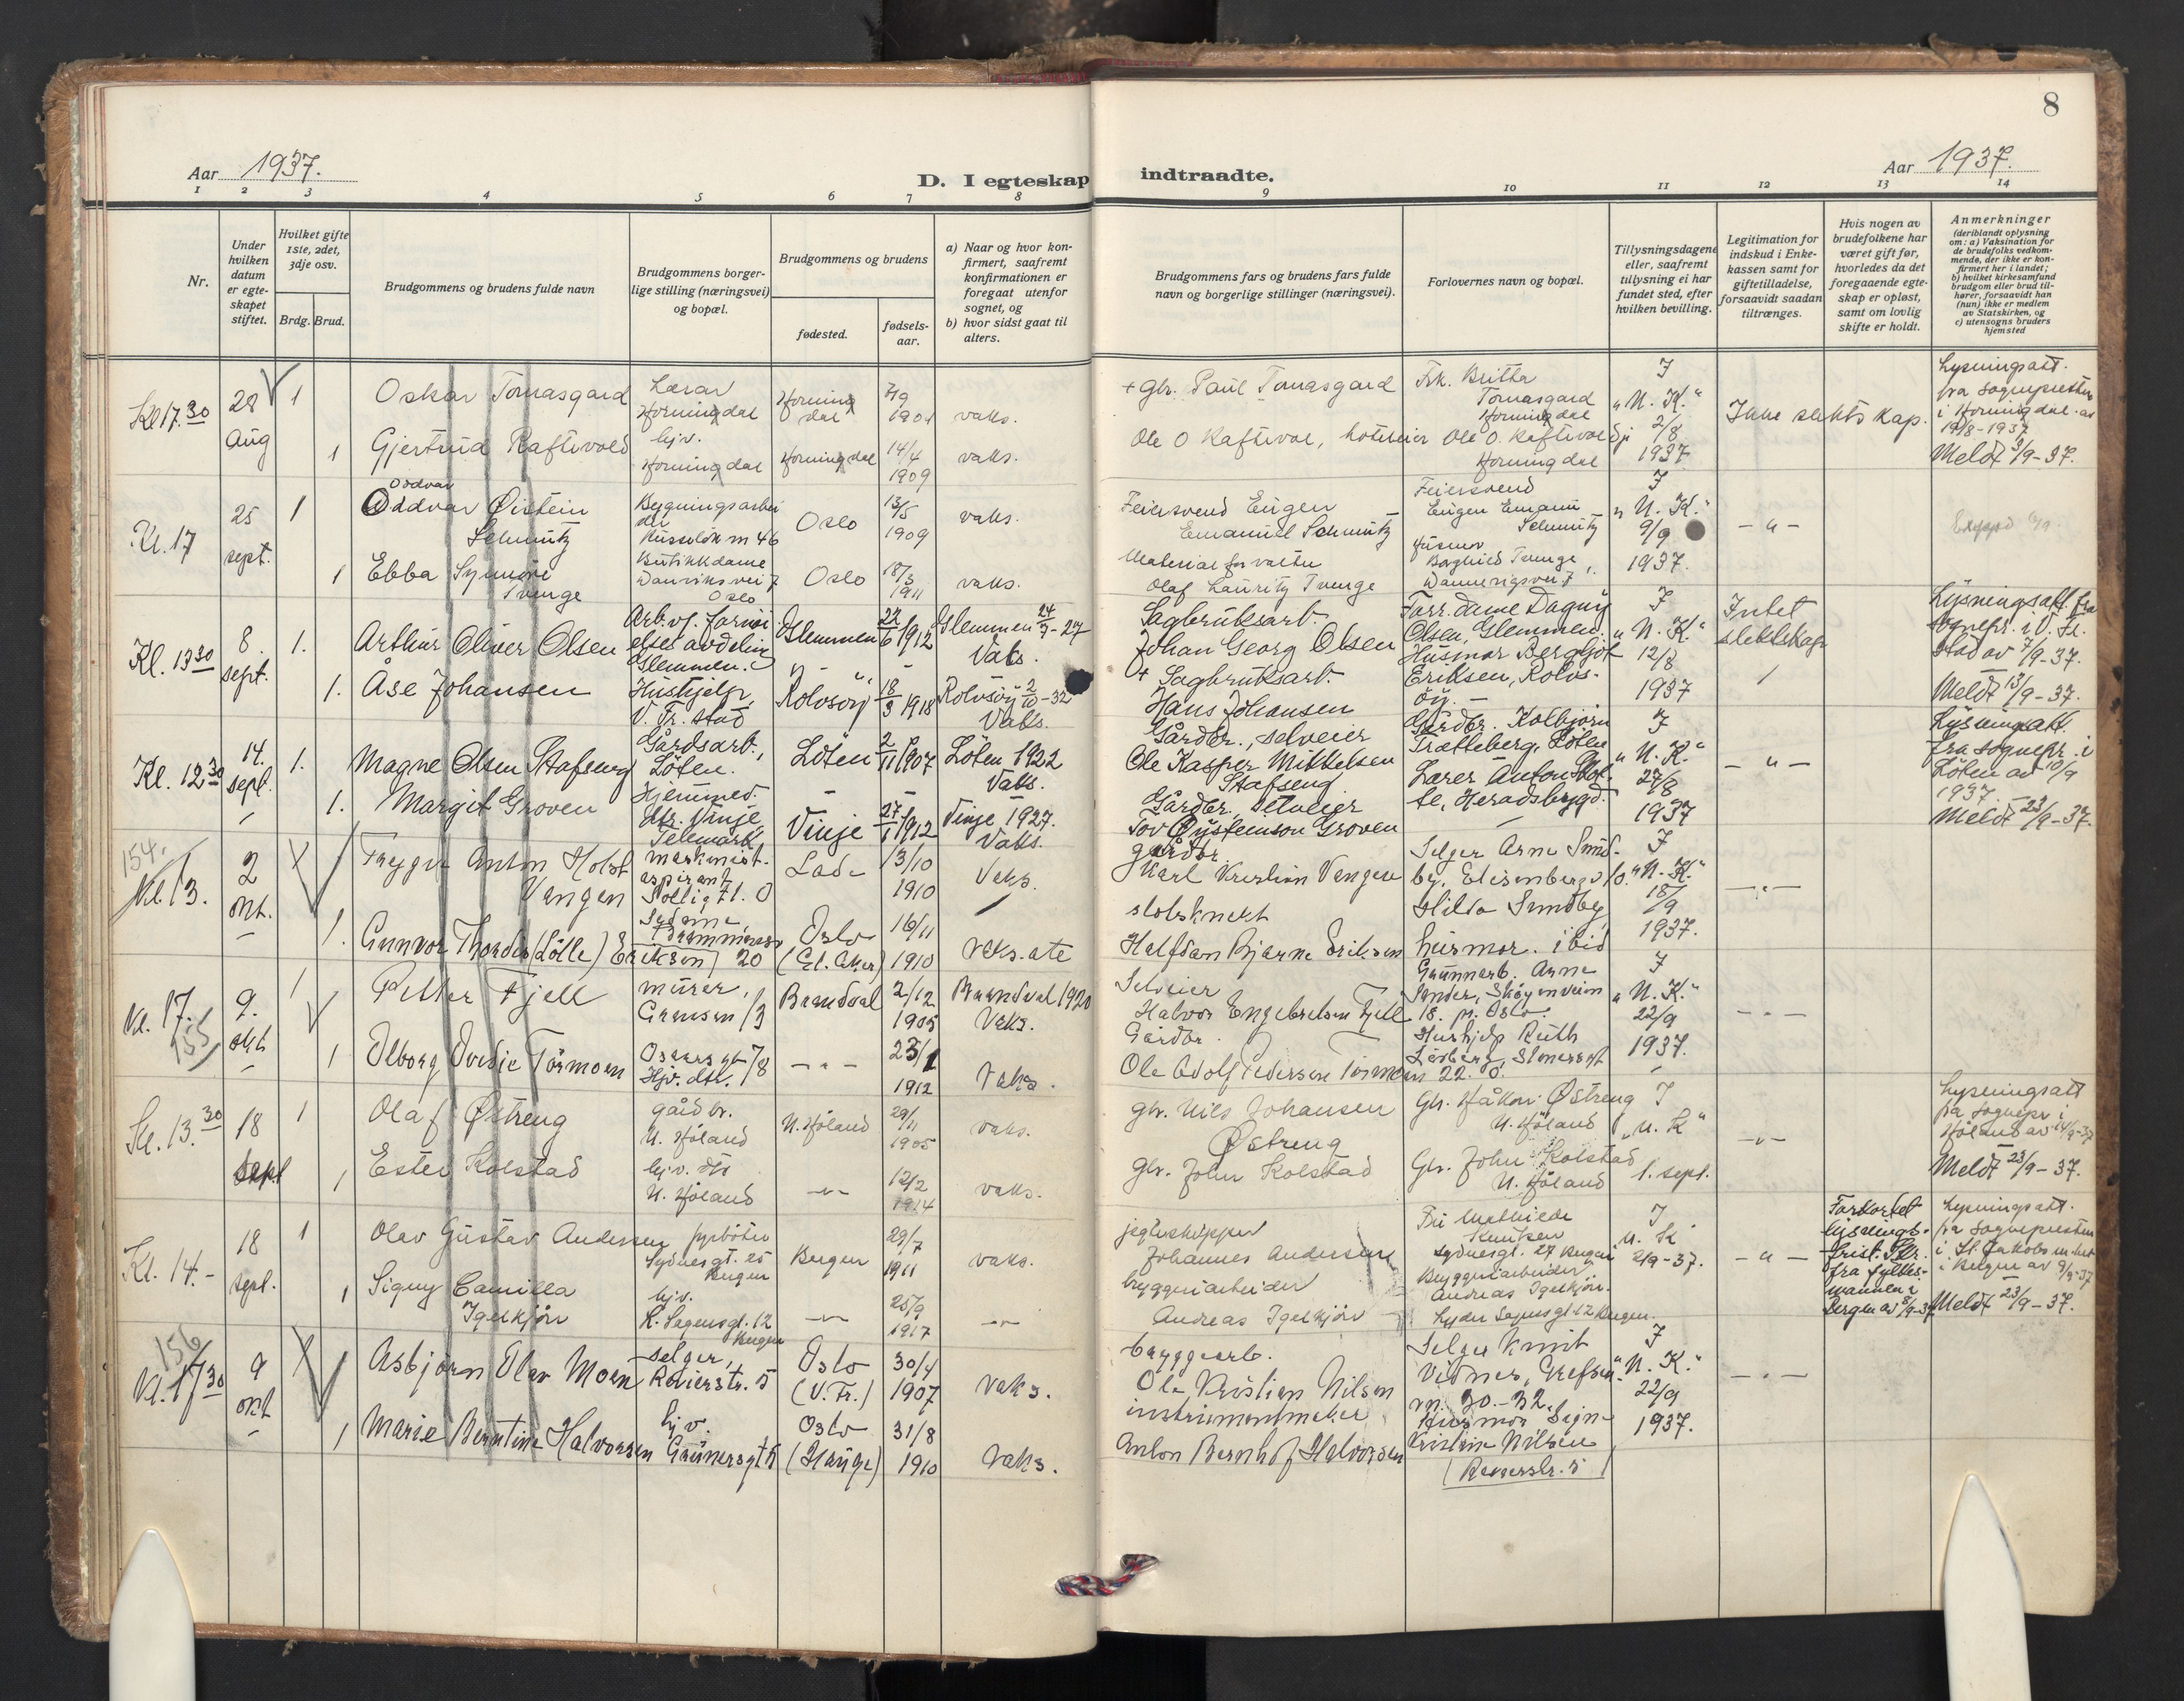 8
Aar 1937.
D. I egteskap indtraadte.
Aar 1937.
1 2 3 4 5 6 7 8 9 10 11 12 13 14
Nr.
Under hvilken datum er egteskapet stiftet.
Hvilket gifte 1ste, 2det, 3dje osv.
Brdg. Brud.
Brudgommens og brudens fulde navn
Brudgommens borgerlige stilling (næringsvei) og bopæl.
Brudgommens og brudens
fødested.
fødselsaar.
a) Naar og hvor konfirmert, saafremt konfirmationen er foregaat utenfor sognet, og
b) hvor sidst gaat til alters.
Brudgommens fars og brudens fars fulde navn og borgerlige stillinger (næringsvei).
Forlovernes navn og bopæl.
Tillysningsdagene eller, saafremt tillysning ei har fundet sted, efter hvilken bevilling.
Legitimation for indskud i Enkekassen samt for giftetilladelse, forsaavidt saadan tiltrænges.
Hvis nogen av brudefolkene har været gift før, hvorledes da det foregaaende egteskap er opløst, samt om lovlig skifte er holdt.
Anmerkninger
(deriblandt oplysning om: a) Vaksination for de brudefolks vedkommende, der ikke er konfirmert her i landet; b) hvilket kirkesamfund brudgom eller brud tilhører, forsaavidt han (hun) ikke er medlem av Statskirken, og c) utensogns bruders hjemsted
Kl 17.30
28 Aug
1
Oskar Tomasgard
Lærar
Horningdal
Horningdal
7/9 1901
vaks.
+ gbr. Paul Tomasgard
Frk. Britha Tomasgard
Horningdal
I
"N. K."
2/8
1937
Lysningsatt.
fra sognepresten
i Horningdal av
19/8-1937
Meldt 3/9-37.
1
Gjertrud Raftevold
hjv.
Horningdal
Horningdal
14/4 1909
vaks.
Ole O Raftevol, hotelleier
Ole O. Raftevold
Horningdal
Kl. 17
25 sept.
1
Oddvar
Oddvar Øistein
Schmitz
Bygningsarbeider
Oslo
13/5 1909
vaks.
Feiersvend Eugen
Emanuel Schmitz
Feiersvend
Eugen Emanu
Schmitz
I
"N. K."
9/9
1937.
- " -
1
Ebba Synnøve
Tvenge
Butikkdame
Oslo
Oslo
18/3 1911
vaks.
Materialforvalter
Olaf Lauritz Tvenge
Husmor
Borghild Tvenge,
Kl. 13 30
8. sept.
1.
Arthur Oliver Olsen
Glemmen.
Glemmen
22/6 1912
Glemmen 24/7-27
Vaks.
Sagbruksart.
Johan Georg Olsen
Forr.dame Dagny
Olsen, Glemmen
I
"N. K."
12/8
1937
Intet
slektskap
Lysningsatt. fra
sognepr. i V. Fr.
stad av 7/9-37.
Meldt 13/9-37.
1.
Åse Johansen
Hushjelp,
V. Fr. stad
Rolvsøy
18/3 1918
Rolvsøy 2/10-32
Vaks.
+ Sagbruksarb.
Hans Johansen
Husmor Bergljot
Eriksen, Rolvsöy.
Kl. 12.30
14. sept.
1.
Magne Olsen Stafseng
Gårdsarb.,
Löten.
Löten
2/11 1907
Löten 1922
Vaks.
Gårdbr., selveier
Ole Kasper Mikkelsen
Stafseng
Gårdbr. Kolbjørn
Trætteberg, Löten
I
"N. K."
27/8
1937
- " -
Lysningsatt.
fra sognepr. i
Löten av 10/9
1937
Meldt 23/9-37.
1.
Margit Groven
Hjemmev.
Vinje
Telemark
Vinje
27/1 1912
Vinje 1927.
Vaks.
Gårdbr. selveier
Tov Øystenson Groven
Lærer Anton
Heradsbygd.
154.
Kl. 13.
2 okt.
Trygve Anton Holst
Vangen
maskinist-
aspirant
Lade
13/10
1910
Vaks.
gårdbr.
Karl Kristian Vangen
Selger Arne Sundby,
I
"N. K."
18/9
1937.
- " -
1.
Gunnvor Thordis (Lölle) Eriksen
20
Oslo
(Gl. Aker)
16/11
1910
Vaks.ate
slotsknekt
Halfdan Bjarne Eriksen
Hilda Sundby
husmor. ibid
Kl. 17.
155
9. okt
1
Petter Fjell
murer,
Grensen 13
Brandval
2/12
1905
Brandval 1920
Vaks.
Selveier
Halvor Engebretsen Fjell
Grunnarb. Arne
Sander, Skøyenveien
18. pr. Oslo.
I
"N. K."
22/9
1937.
- " -
1
Olborg Ovidie Törmoen
Oscars gt 78
Hjv. dtr.
- " -
23/1
1912
Vaks.
Gårdbr.
Ole Adolf Pedersen Törmoen
Hushjelp Ruth
22. O.
Kl. 13.30
18 Sept
1
Olaf Østreng
gårdbr.
N. Höland
N. Höland
29/11
1905
vaks.
gbr. Nils Johansen
Østreng
Gbr. Håkon Østreng
N. Höland
I
"N. K"
1. sept.
- " -
Lysningsatt
fra sognepr i
Höland av 14/9-37
Meldt 23/9-37.
1
Ester Kolstad
hjv. dtr
N. Höland
- " -
12/2
1914
vaks.
gbr. John Kolstad
Gbr. John Kolstad
N. Höland
Kl. 14.-
18 sept.
1
Olav Gustav Andersen
fyrböter
Sydnesgt. 25
Bergen
Bergen
29/7
1911
vaks.
jekteskipper
Johannes Andersen
Fru Mathilde
Knutsen
Sydnesgt. 27 Bergen
I
N. K
2/9-37.
- " -
Forkortet
lysningsfrist.
fra fylkesmannen i
Bergen av 8/9-37
Lysningsatt.
fra sognepresten
i St. Jakobs menhet
i Bergen av 9/9-37
Meldt 23/9-37.
1
Signy Camilla
Igelkjön
hjv.
L. Sagensgt. 12
Bergen
- " -
25/9
1917
- " -
bryggeriarbeider
Andreas Igelkjön
Bryggeriarbeider
Andreas Igelkjön.
Lyder Sagensgt 12 Bergen.
156
Kl. 17 30
9 okt
Asbjörn Olav Moen
selger,
Revierstr. 5
Oslo
(V. Fr.)
30/4
1907
Vaks.
byggearb.
Ole Kristian Nilsen
Selger Knut
Vidnes, Grefsen
vn. 30-32.
I
"N. K."
22/9
1937.
- " -
1
Marie Berntine Halvorsen
hjv.
Grünersgt 5
Oslo
(Hauge)
31/8
1910
Vaks.
instrumentmaker
Anton Bernhof Halvorsen
Husmor Sign-
Kristine Nilsen
(Revierstr. 5)